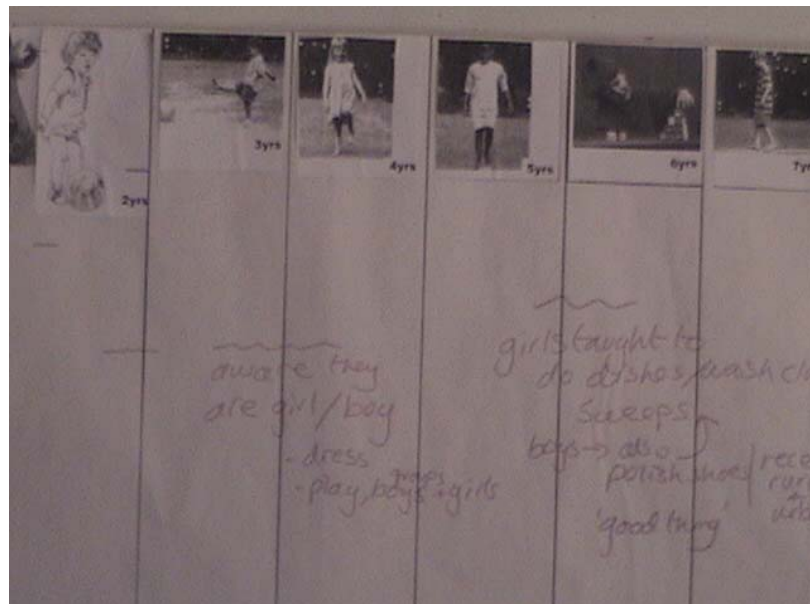 2yrs
3yrs
4yrs
5yrs
6yrs
7yr
aware they
are girl/boy
- dress
groups
- play, boys + girls
girls taught to
do dishes/wash cl
sweeps
boys → also
polish shoes
'good thing'
rece
rur